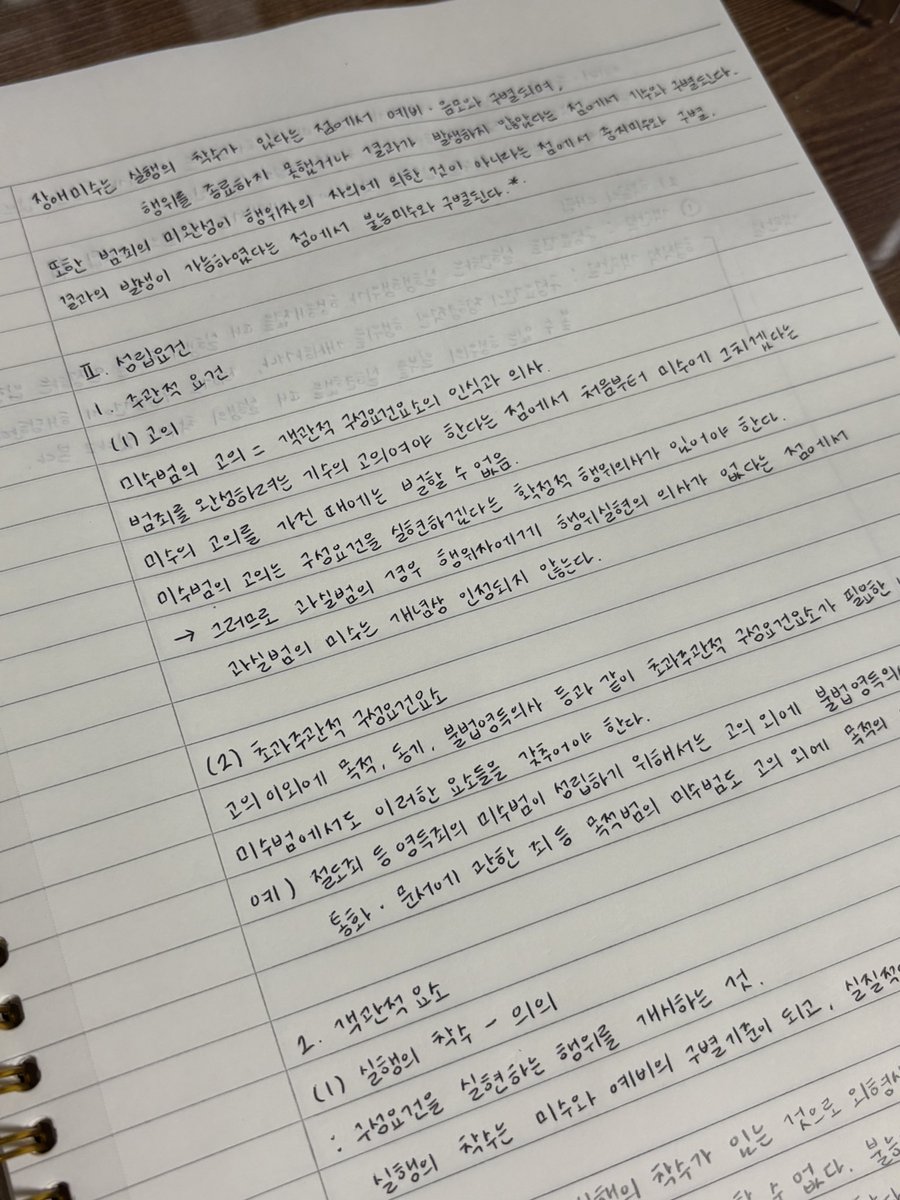 장애미수는 실행의 착수가 있다는 점에서 예비·음모와 구별되며,
행위를 종료하지 못했거나 결과가 발생하지 않았다는 점에서 기수와 구별된다.
또한 범죄의 미완성이 행위자의 자의에 의한 것이 아니라는 점에서 중지미수와 구별.
결과의 발생이 가능하였다는 점에서 불능미수와 구별된다.*
Ⅱ. 성립요건
1. 주관적 요건
(1) 고의
미수범의 고의 = 객관적 구성요건요소의 인식과 의사.
범죄를 완성하려는 기수의 고의여야 한다는 점에서 처음부터 미수에 그치겠다는
미수의 고의를 가진 때에는 벌할 수 없음.
미수범의 고의는 구성요건을 실현하겠다는 확정적 행위의사가 있어야 한다.
→ 그러므로 과실범의 경우 행위자에게 행위실현의 의사가 없다는 점에서
과실범의 미수는 개념상 인정되지 않는다.
(2) 초과주관적 구성요건요소
고의 이외에 목적, 동기, 불법영득의사 등과 같이 초과주관적 구성요건요소가 필요한
미수범에서도 이러한 요소들을 갖추어야 한다.
예) 절도죄 등 영득죄의 미수범이 성립하기 위해서는 고의 외에 불법영득의
통화·문서에 관한 죄 등 목적범의 미수범도 고의 외에 목적의
2. 객관적 요소
(1) 실행의 착수 - 의의
: 구성요건을 실현하는 행위를 개시하는 것.
실행의 착수는 미수와 예비의 구별기준이 되고, 실질적
착수가 있는 것으로 외형상
수 없다. 불능